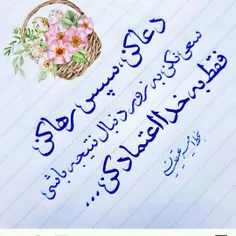 دعا کن، سپس رها کن
سعی نکن به زور دنبال نتیجه باشی
فقط به خدا اعتماد کن...